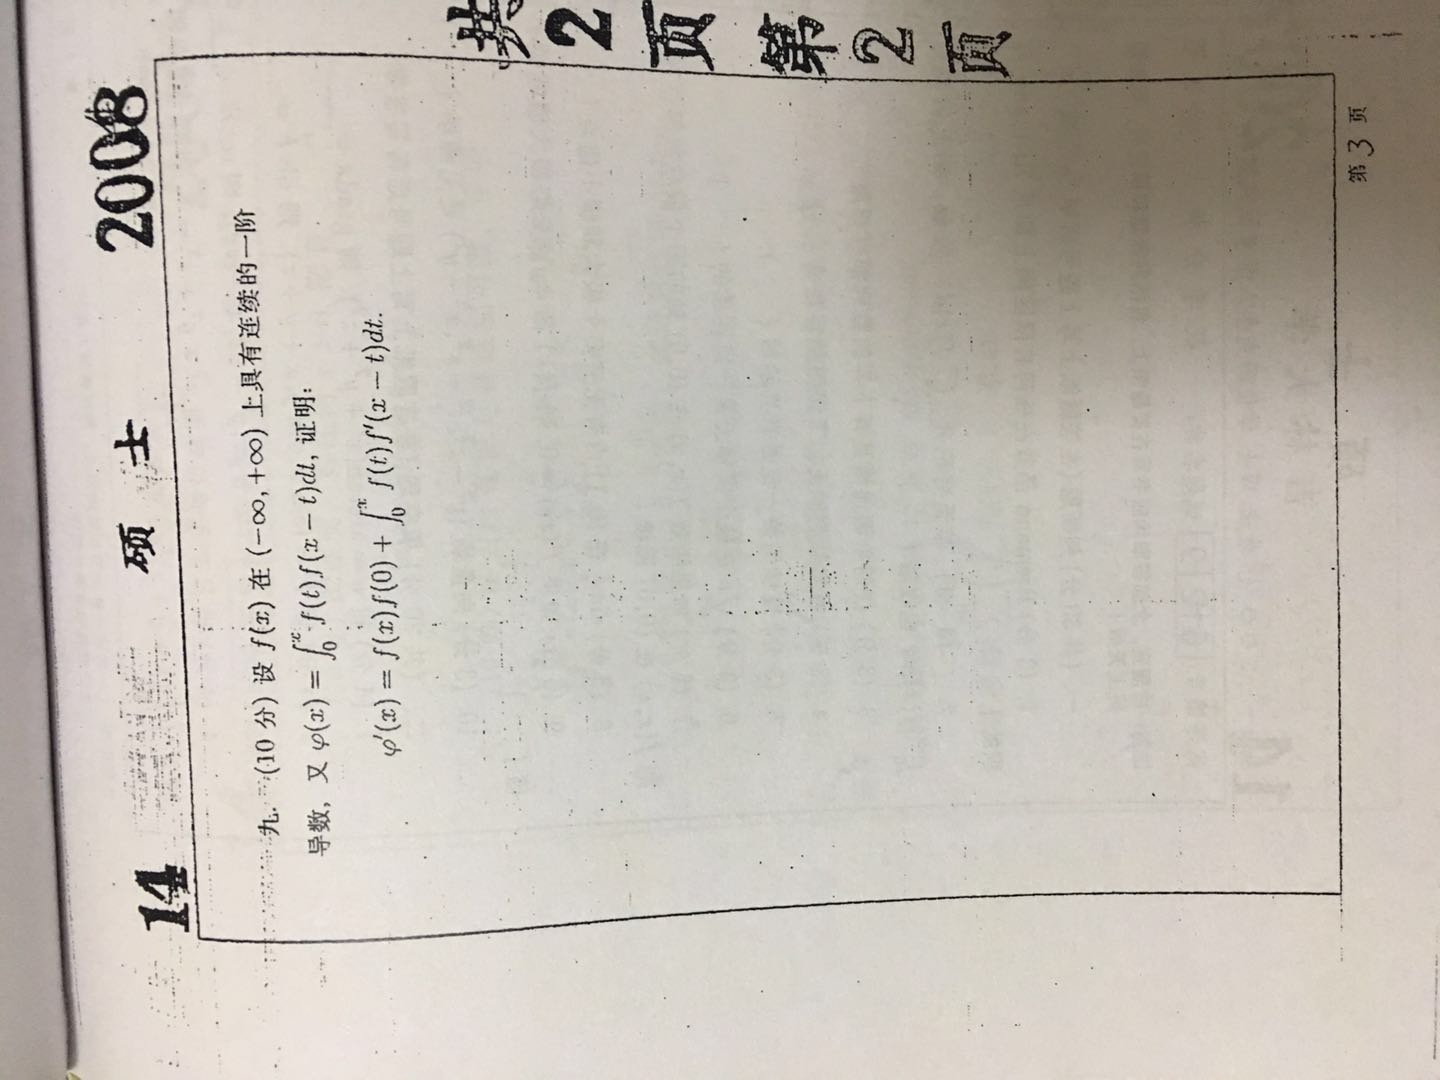 14 硕士 2008
九. (10 分) 设 f(x) 在 (−∞, +∞) 上具有连续的一阶
导数, 又 φ(x) = ∫₀ˣ f(t)f(x − t)dt, 证明:
φ′(x) = f(x)f(0) + ∫₀ˣ f(t)f′(x − t)dt.
共2页 第2页
第3页